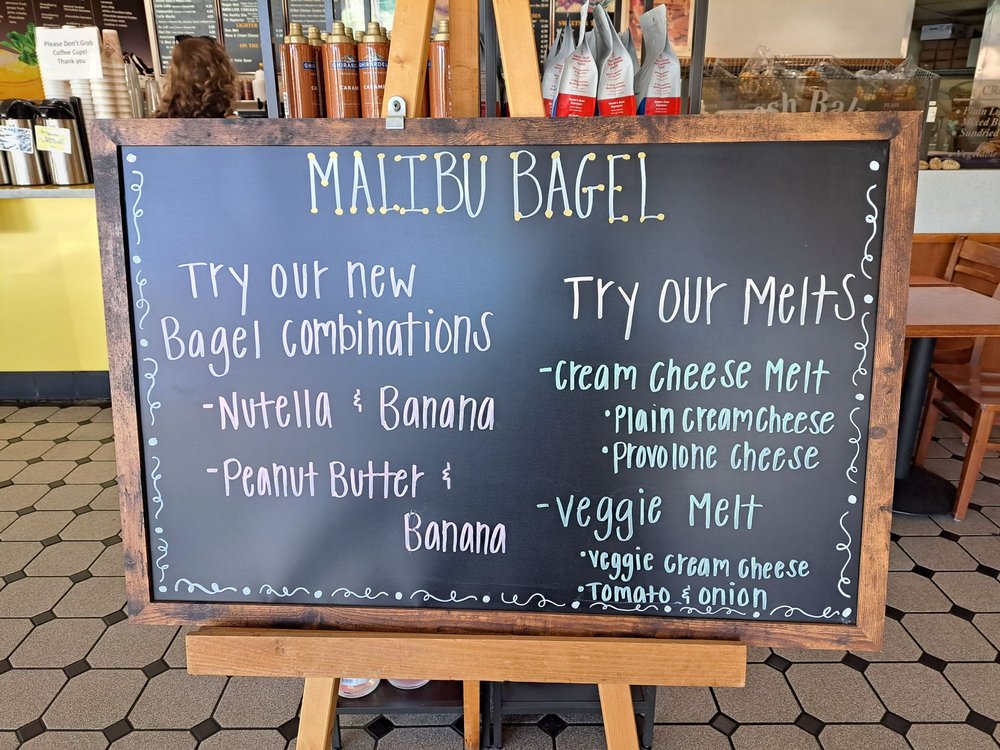 Please Don't Grab
Coffee Cups!
Thank you
GHIRARDELLI
CARAMEL
MALIBU BAGEL
Try our new
Bagel combinations
-Nutella & Banana
-Peanut Butter &
Banana
Try our Melts
-Cream Cheese Melt
•Plain Cream Cheese
•Provolone Cheese
-Veggie Melt
•Veggie Cream Cheese
•Tomato & onion